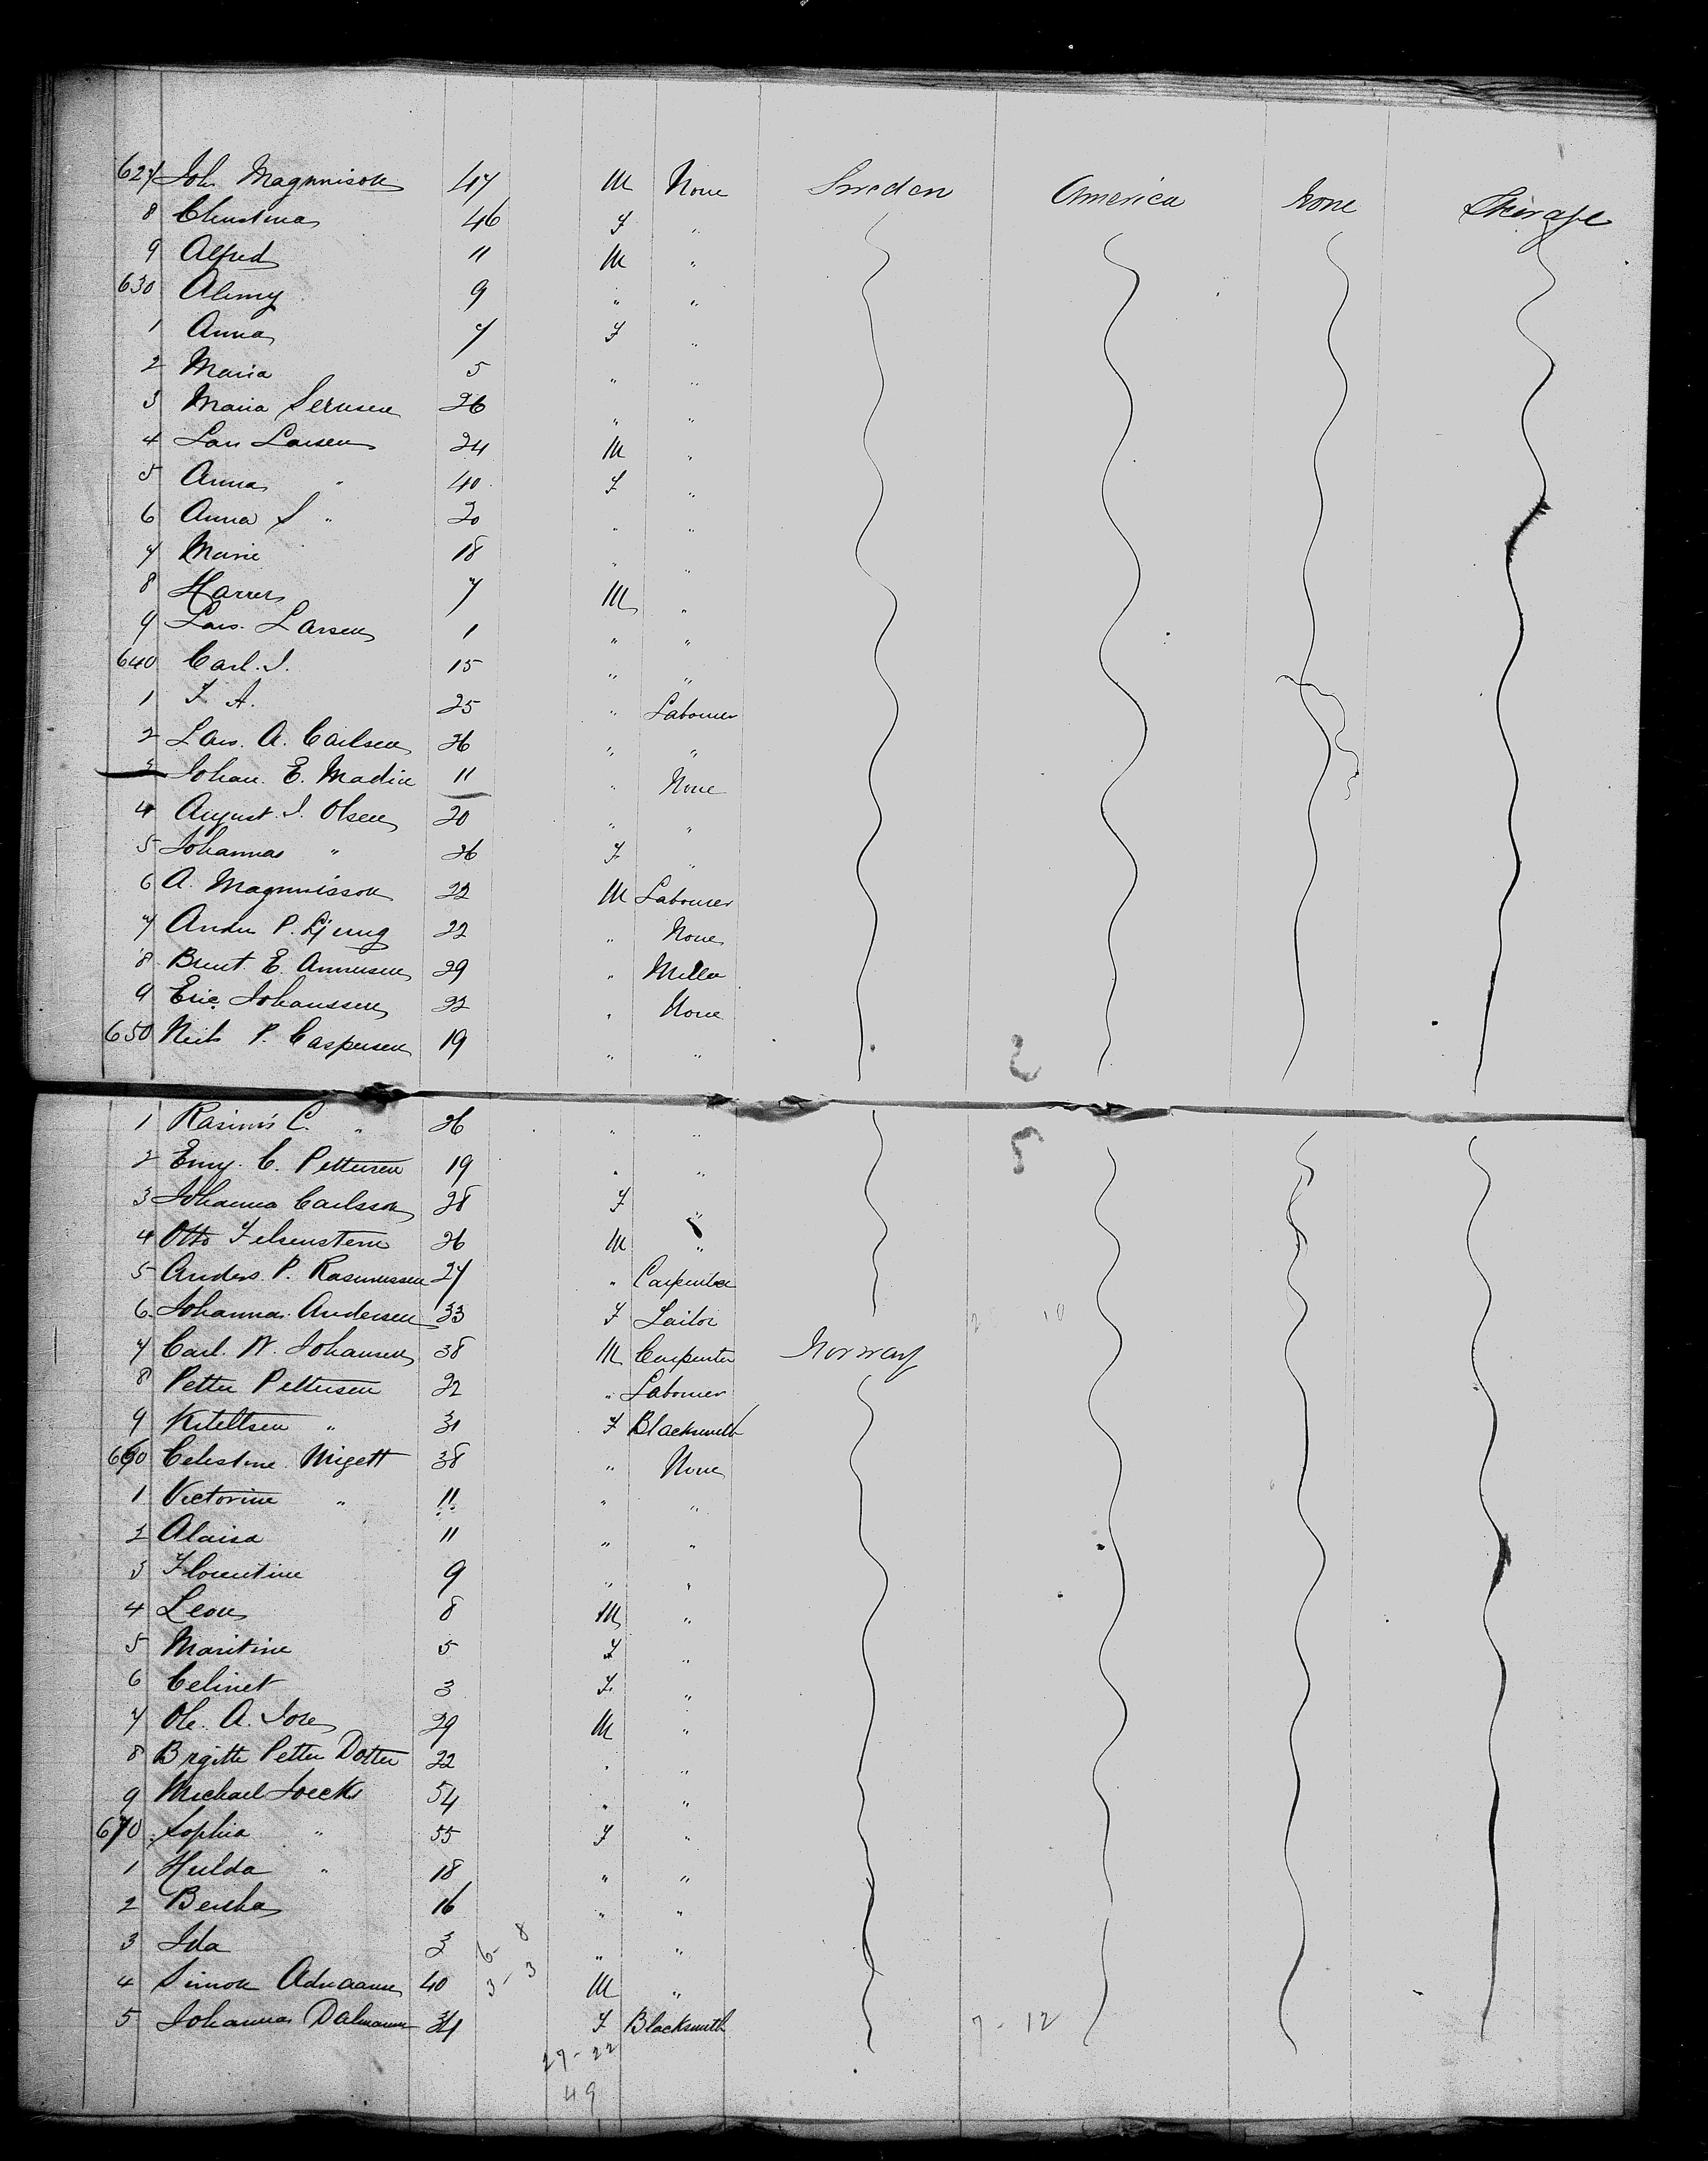 627 Joh. Magnnison 47 M None Sweden America None Steerage
8 Christina 46 F "
9 Alfred 11 M "
630 9 " "
1 Anna 7 F "
2 Maria 5 " "
3 Maria 26 " "
4 Lars Larsen 24 M "
5 Anna " 40 F "
6 Anna S " 20 " "
7 Marie 18 " "
8 7 M "
9 Lars. Larsen 1 " "
640 Carl. J. 15 " "
1 F. A. 25 " Labourer
2 Lars. A. Carlsen 26 " "
3 Johan. E. Madin 11 " None
4 August. J. Olsen 20 " "
5 Johannas " 26 F "
6 A. Magnnisson 22 M Labourer
7 P. 22 " None
8 E. 29 " Miller
9 Eric Johanssen 22 " None
650 P. Caspersen 19 " "
2
1 C. " 26 " "
5
2 C. Pettersen 19 " "
3 Johanna Carlsson 28 F "
4 Otto Felsenstern 26 M "
5 Anders. P. Rasmussen 27 " Carpenter
6 Johannas Andersen 33 F Tailor
7 Carl. W. Johansen 38 M Carpenter Norway
8 Petter Pettersen 22 " Labourer
9 Kiteltsen " 31 F Blacksmith
660 Celestine Migett 38 " None
1 Victorine " 11 " "
2 Alaisa 11 " "
3 Florentine 9 " "
4 Leon 8 M "
5 Maritine 5 F "
6 Celinet 3 F "
7 Ole. A. 29 M "
8 Brgitte Petter Dotter 22 " "
9 Michael 54 " "
670 Sophia " 55 F "
1 Hulda " 18 " "
2 Bertha 16 " "
3 Ida 3 6 - 8 " "
4 Simon 40 3 - 3 M "
5 Johannas Dalmann 34 F Blacksmith 7 - 12
27 - 22
49